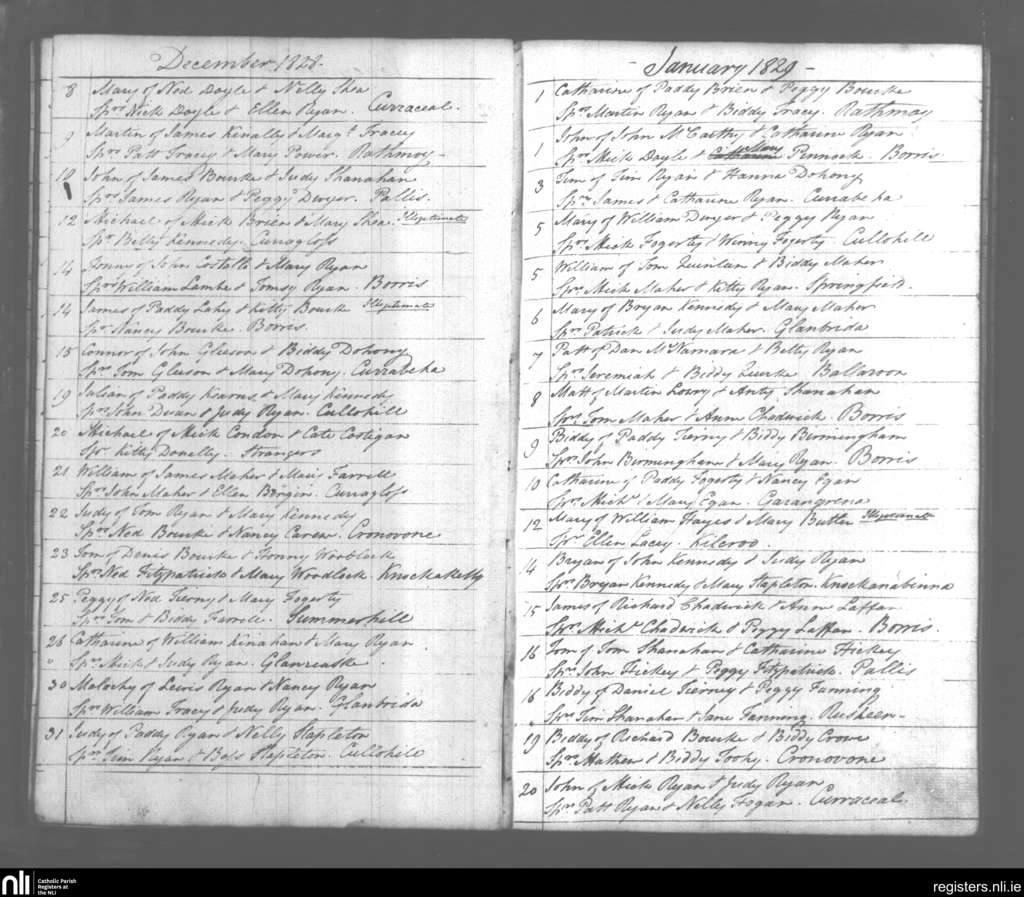 December 1828.
8 Mary of Ned Doyle & Nelly Shea
Sprs Nick Doyle & Ellen Ryan. Curraceal.
9 Martin of James Kenally & Mary Tracey
Sprs Patt Tracey & Mary Power. Rathmoy
10 John of James Bourke & Judy Shanahan
Sprs James Ryan & Peggy Dwyer. Pallis.
12 Michael of Mick Brien & Mary Shea Illegitimate
Spr Betty Kennedy. Curraglass
14 Jenny of John Costello & Mary Ryan
Sprs William Lambe & Tomsy Ryan. Borris
14 James of Paddy Lahy & Kitty Bourke Illegitimate
Spr Nancy Bourke. Borris.
15 Connor of John Gleeson & Biddy Dohony
Sprs Tom Gleeson & Mary Dohony. Currabeha
19 Julian of Paddy Kearns & Mary Kennedy
Sprs John Dwan & Judy Ryan. Cullohill
20 Michael of Mick Condon & Cate Costigan
Spr Kitty Donelly. Strangers
21 William of James Maher & Mary Farrell
Sprs John Maher & Ellen Bergin. Curraglass
22 Judy of Tom Ryan & Mary Kennedy
Sprs Ned Bourke & Nancy Carew. Cronovone
23 Tom of Denis Bourke & Fanny Woodlock
Sprs Ned Fitzpatrick & Mary Woodlock. Knockakelly
25 Peggy of Ned Tierny & Mary Fogerty
Sprs Tom & Biddy Farrell. Summerhill
26 Catharine of William Kinahan & Mary Ryan
" Sprs Mick & Judy Ryan. Glanreaske
30 Malachy of Lewis Ryan & Nancy Ryan
Sprs William Tracey & Judy Ryan. Glanbrida
31 Judy of Paddy Ryan & Nelly Stapleton
Sprs Tim Ryan & Bess Stapleton. Cullohill
- January 1829 -
1 Catharine of Paddy Brien & Peggy Bourke
Sprs Martin Ryan & Biddy Tracy. Rathmoy
1 John of John McCarthy & Catharine Ryan
Sprs Mick Doyle & Catharine Mary Pennock. Borris
3 Tim of Tim Ryan & Hanna Dohony
Sprs James & Catharine Ryan. Currabeha
5 Mary of William Dwyer & Peggy Ryan
Sprs Mick Fogerty & Winny Fogerty. Cullohill
5 William of Tom Quinlan & Biddy Maher
Sprs Mick Maher & Kitty Ryan. Springfield.
6 Mary of Bryan Kennedy & Mary Maher
Sprs Patrick & Judy Maher. Glanbrida
7 Patt of Dan McNamara & Betty Ryan
Sprs Jeremiah & Biddy Quirke. Ballaroon
8 Matt of Martin Lowry & Anty Shanahan
Sprs Tom Maher & Ann Chadwick. Borris
9 Biddy of Paddy Tierny & Biddy Birmingham
Sprs John Birmingham & Mary Ryan. Borris
10 Catharine of Paddy Fogerty & Nancy Egan
Sprs Michl & Mary Egan. Garangrena
12 Mary of William Hayes & Mary Butler Illegitimate
Spr Ellen Lacey. Kilcroo
14 Bryan of John Kennedy & Judy Ryan
Sprs Bryan Kennedy & Mary Stapleton. Knockanabinna
15 James of Richard Chadwick & Ann Laffan
Sprs Michl Chadwick & Peggy Laffan. Borris.
16 Tom of Tom Shanahan & Catharine Hickey
Sprs John Hickey & Peggy Fitzpatrick. Pallis
16 Biddy of Daniel Tierney & Peggy Fanning
" Sprs Tim Shanahan & Jane Fanning. Rusheen
19 Biddy of Richard Bourke & Biddy Crowe
Sprs Mathew & Biddy Toohy. Cronovone
20 John of Mick Ryan & Judy Ryan
Sprs Patt Ryan & Nelly Fogan. Curraceal.
nli
Catholic Parish
Registers at
the NLI
registers.nli.ie